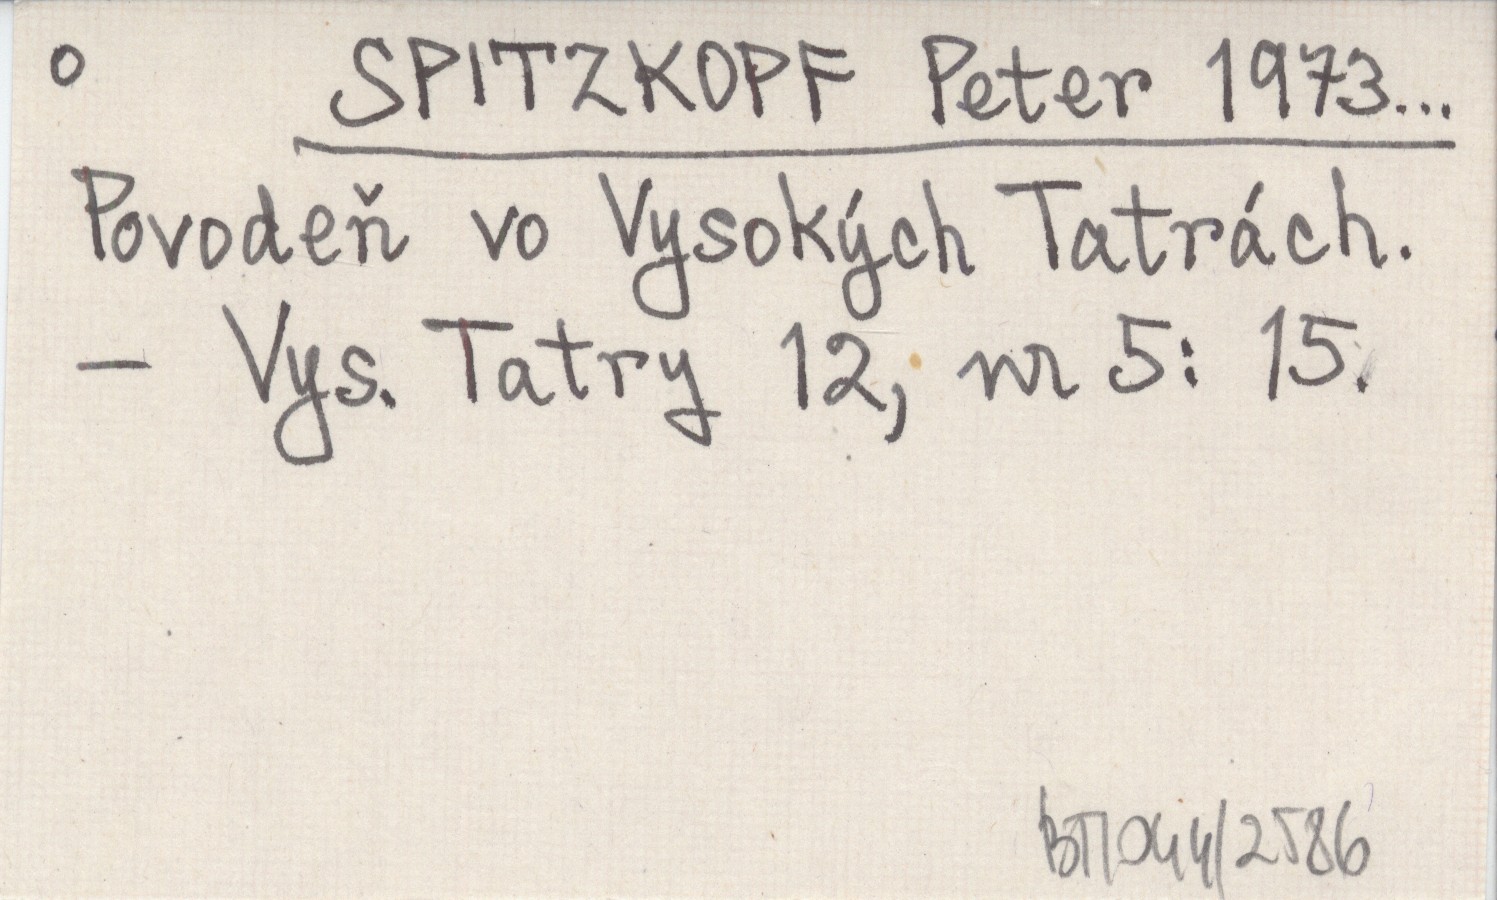 o SPITZKOPF Peter 1973...
Povodeň vo Vysokých Tatrách.
— Vys. Tatry 12, nr 5: 15.
BTI 044/2586